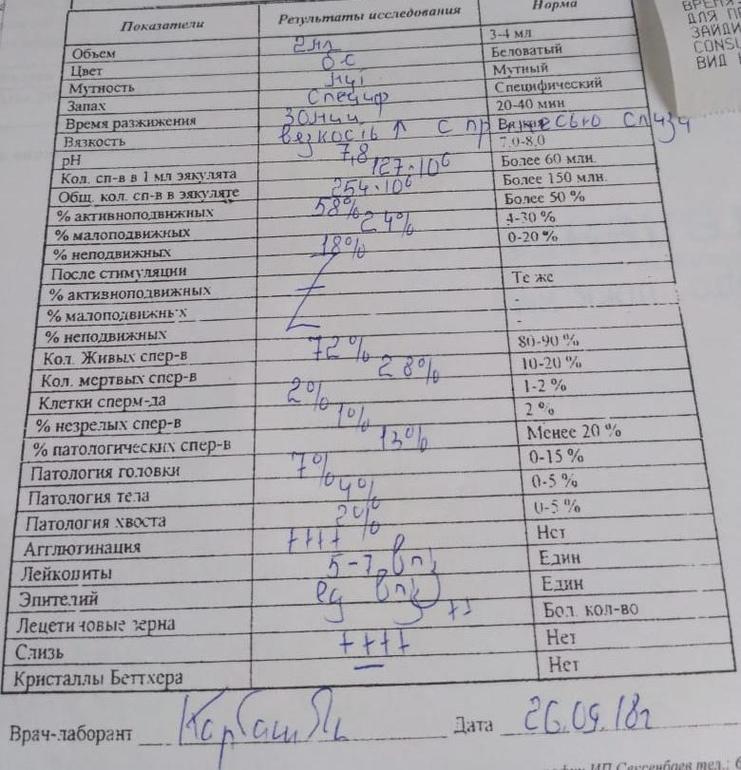 Показатели Результаты исследования Норма
Объем 2мл 3-4 мл
Цвет б с Беловатый
Мутность мут Мутный
Запах специф Специфический
Время разжижения 30мин 20-40 мин
Вязкость вязкость ↑ с примесью слизи Вязкая
pH 7,8 7,0-8,0
Кол. сп-в в 1 мл эякулята 127·10⁶ Более 60 млн.
Общ. кол. сп-в в эякуляте 254·10⁶ Более 150 млн.
% активноподвижных 58% Более 50 %
% малоподвижных 24% 4-30 %
% неподвижных 18% 0-20 %
После стимуляции
% активноподвижных Те же
% малоподвижных -
% неподвижных -
Кол. Живых спер-в 72% 80-90 %
Кол. мертвых спер-в 28% 10-20 %
Клетки сперм-да 2% 1-2 %
% незрелых спер-в 1% 2 %
% патологических спер-в 13% Менее 20 %
Патология головки 7% 0-15 %
Патология тела 4% 0-5 %
Патология хвоста 2% 0-5 %
Агглютинация ++++ Нет
Лейкоциты 5-7 в п/з Един
Эпителий ед в п/з Един
Лецетиновые зерна ++ Бол. кол-во
Слизь ++++ Нет
Кристаллы Беттхера — Нет
Врач-лаборант Дата 26.09.18г
ИП Сексенбаев тел.:
ВРЕМЯ
ДЛЯ П
ЗАЙДИ
CONSU
ВИД